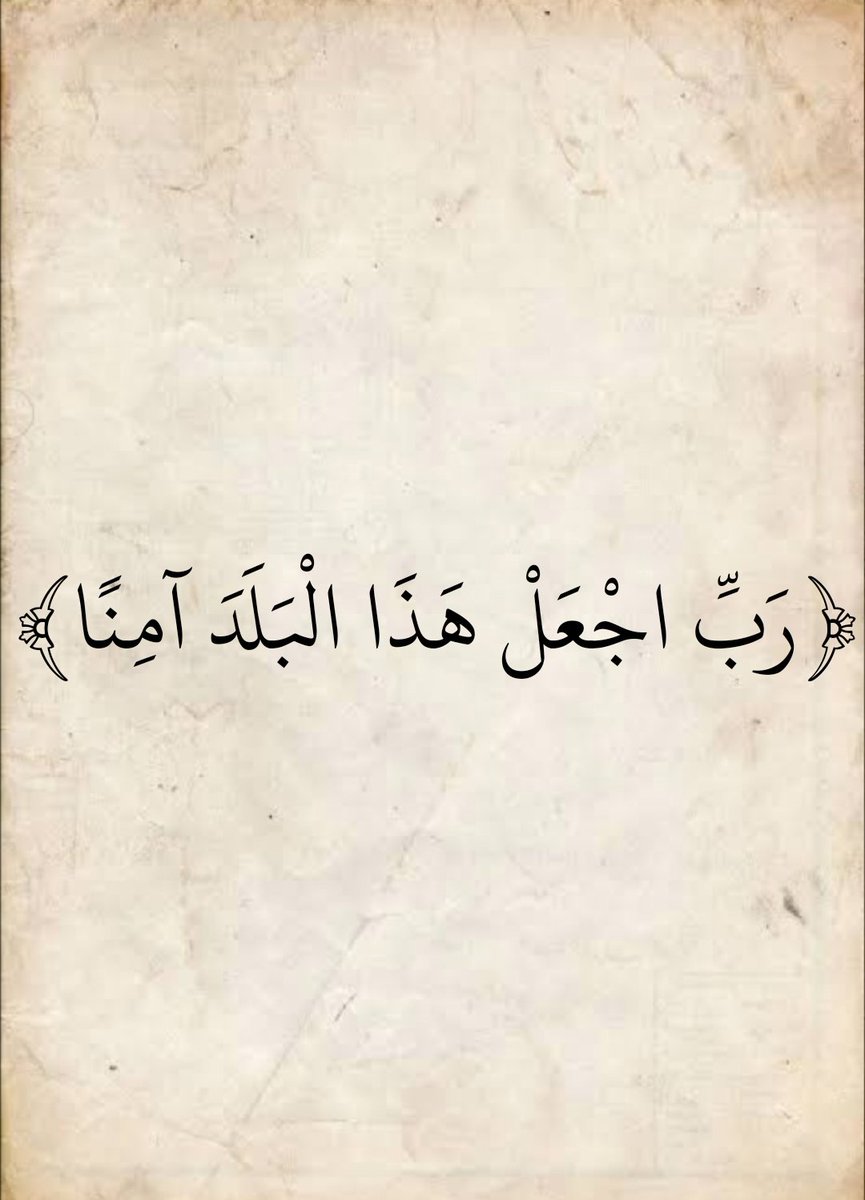 ﴿رَبِّ اجْعَلْ هَذَا الْبَلَدَ آمِنًا﴾